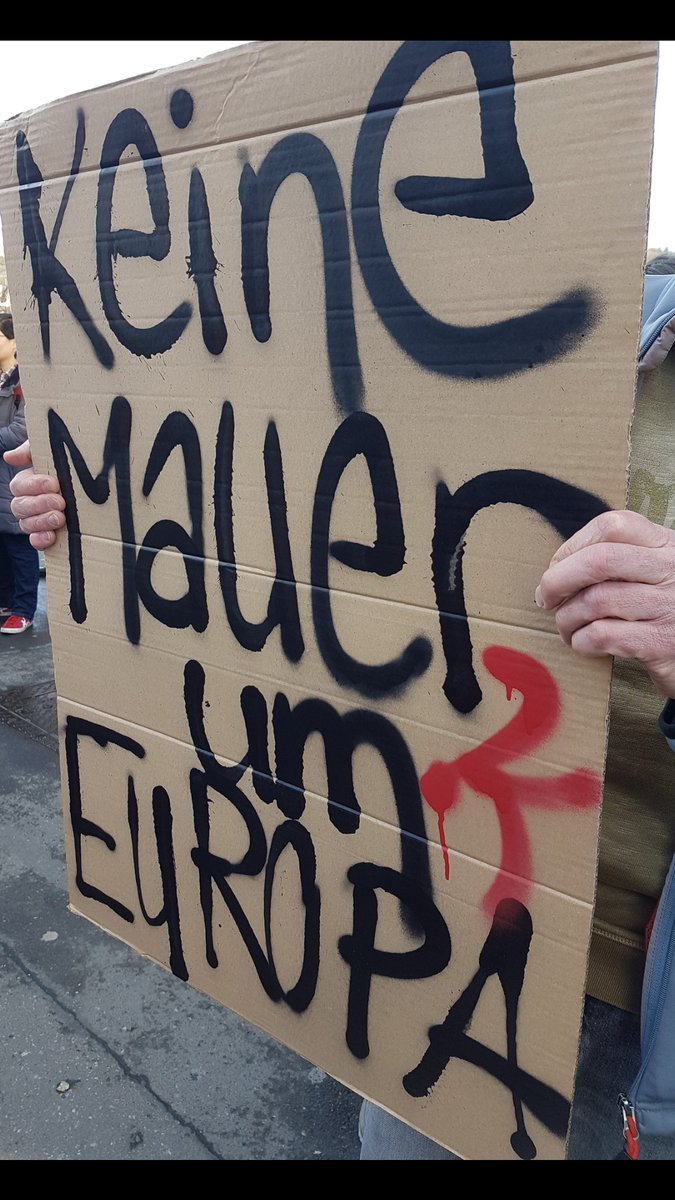 Keine
Mauer
um
EUROPA